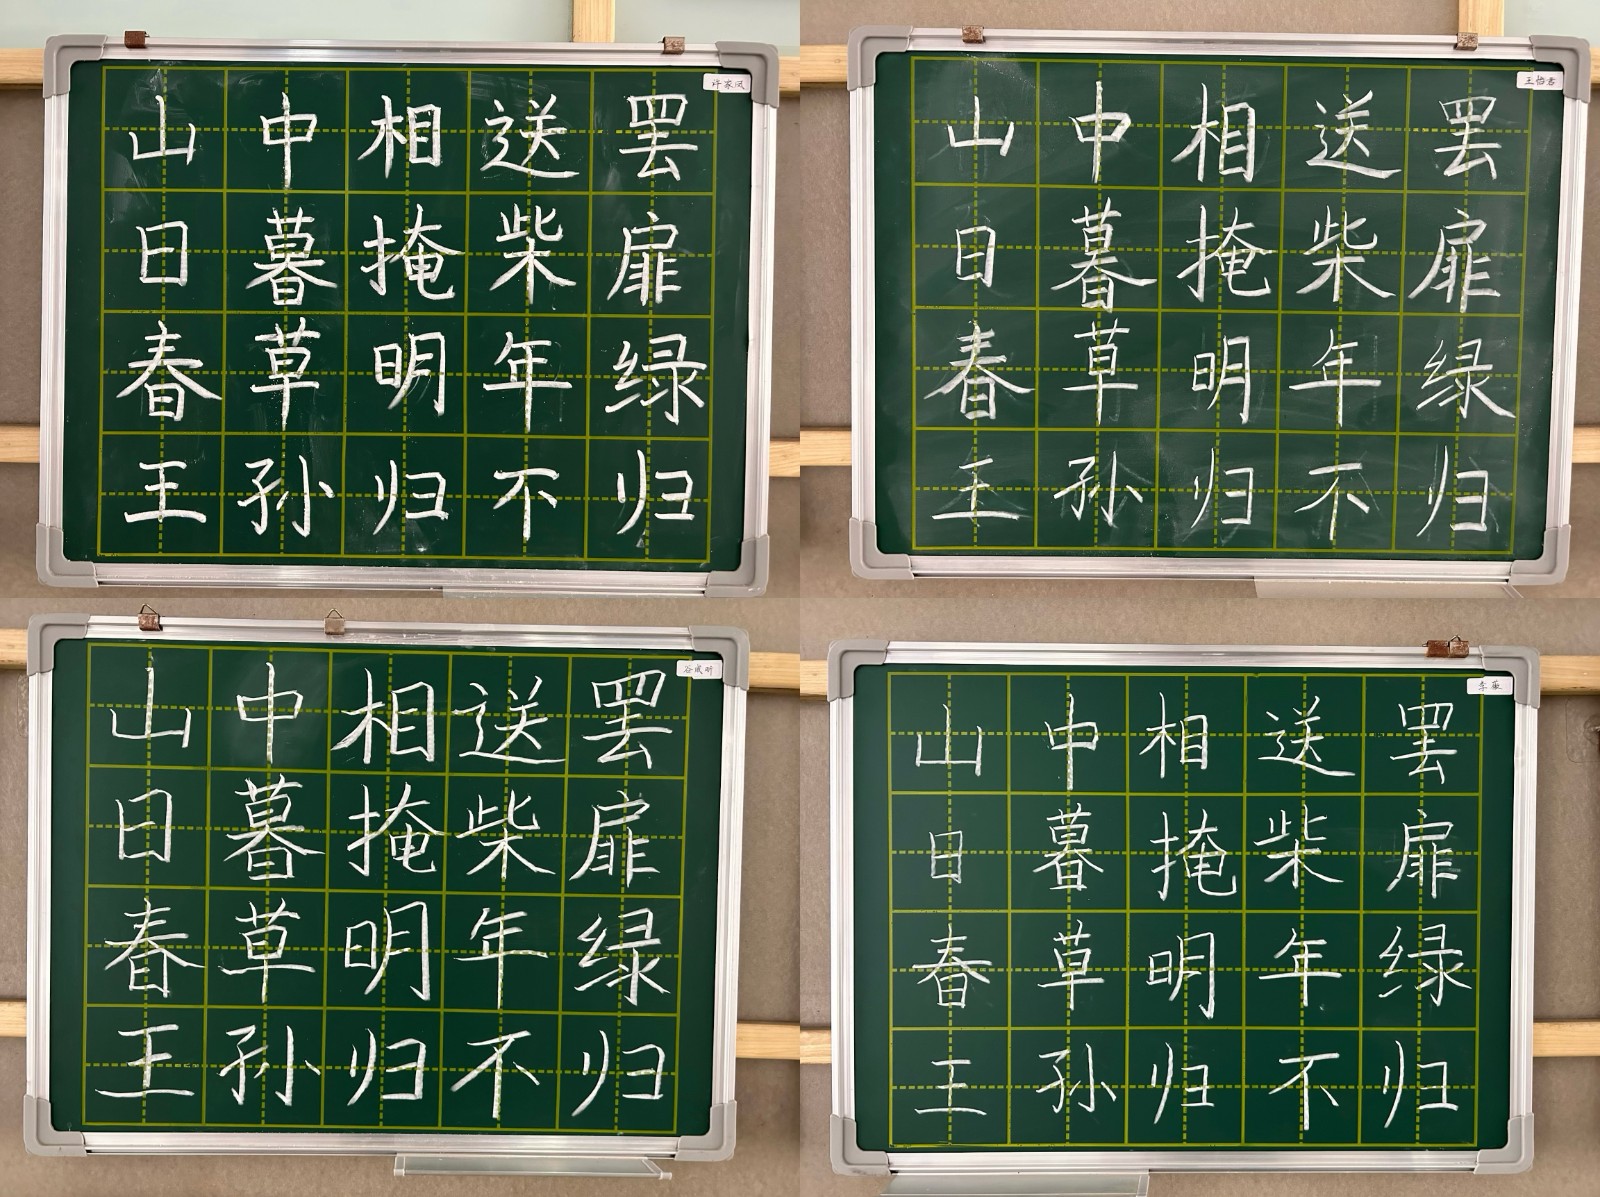 许家凤
山中相送罢
日暮掩柴扉
春草明年绿
王孙归不归
王怡君
山中相送罢
日暮掩柴扉
春草明年绿
王孙归不归
山中相送罢
日暮掩柴扉
春草明年绿
王孙归不归
山中相送罢
日暮掩柴扉
春草明年绿
王孙归不归